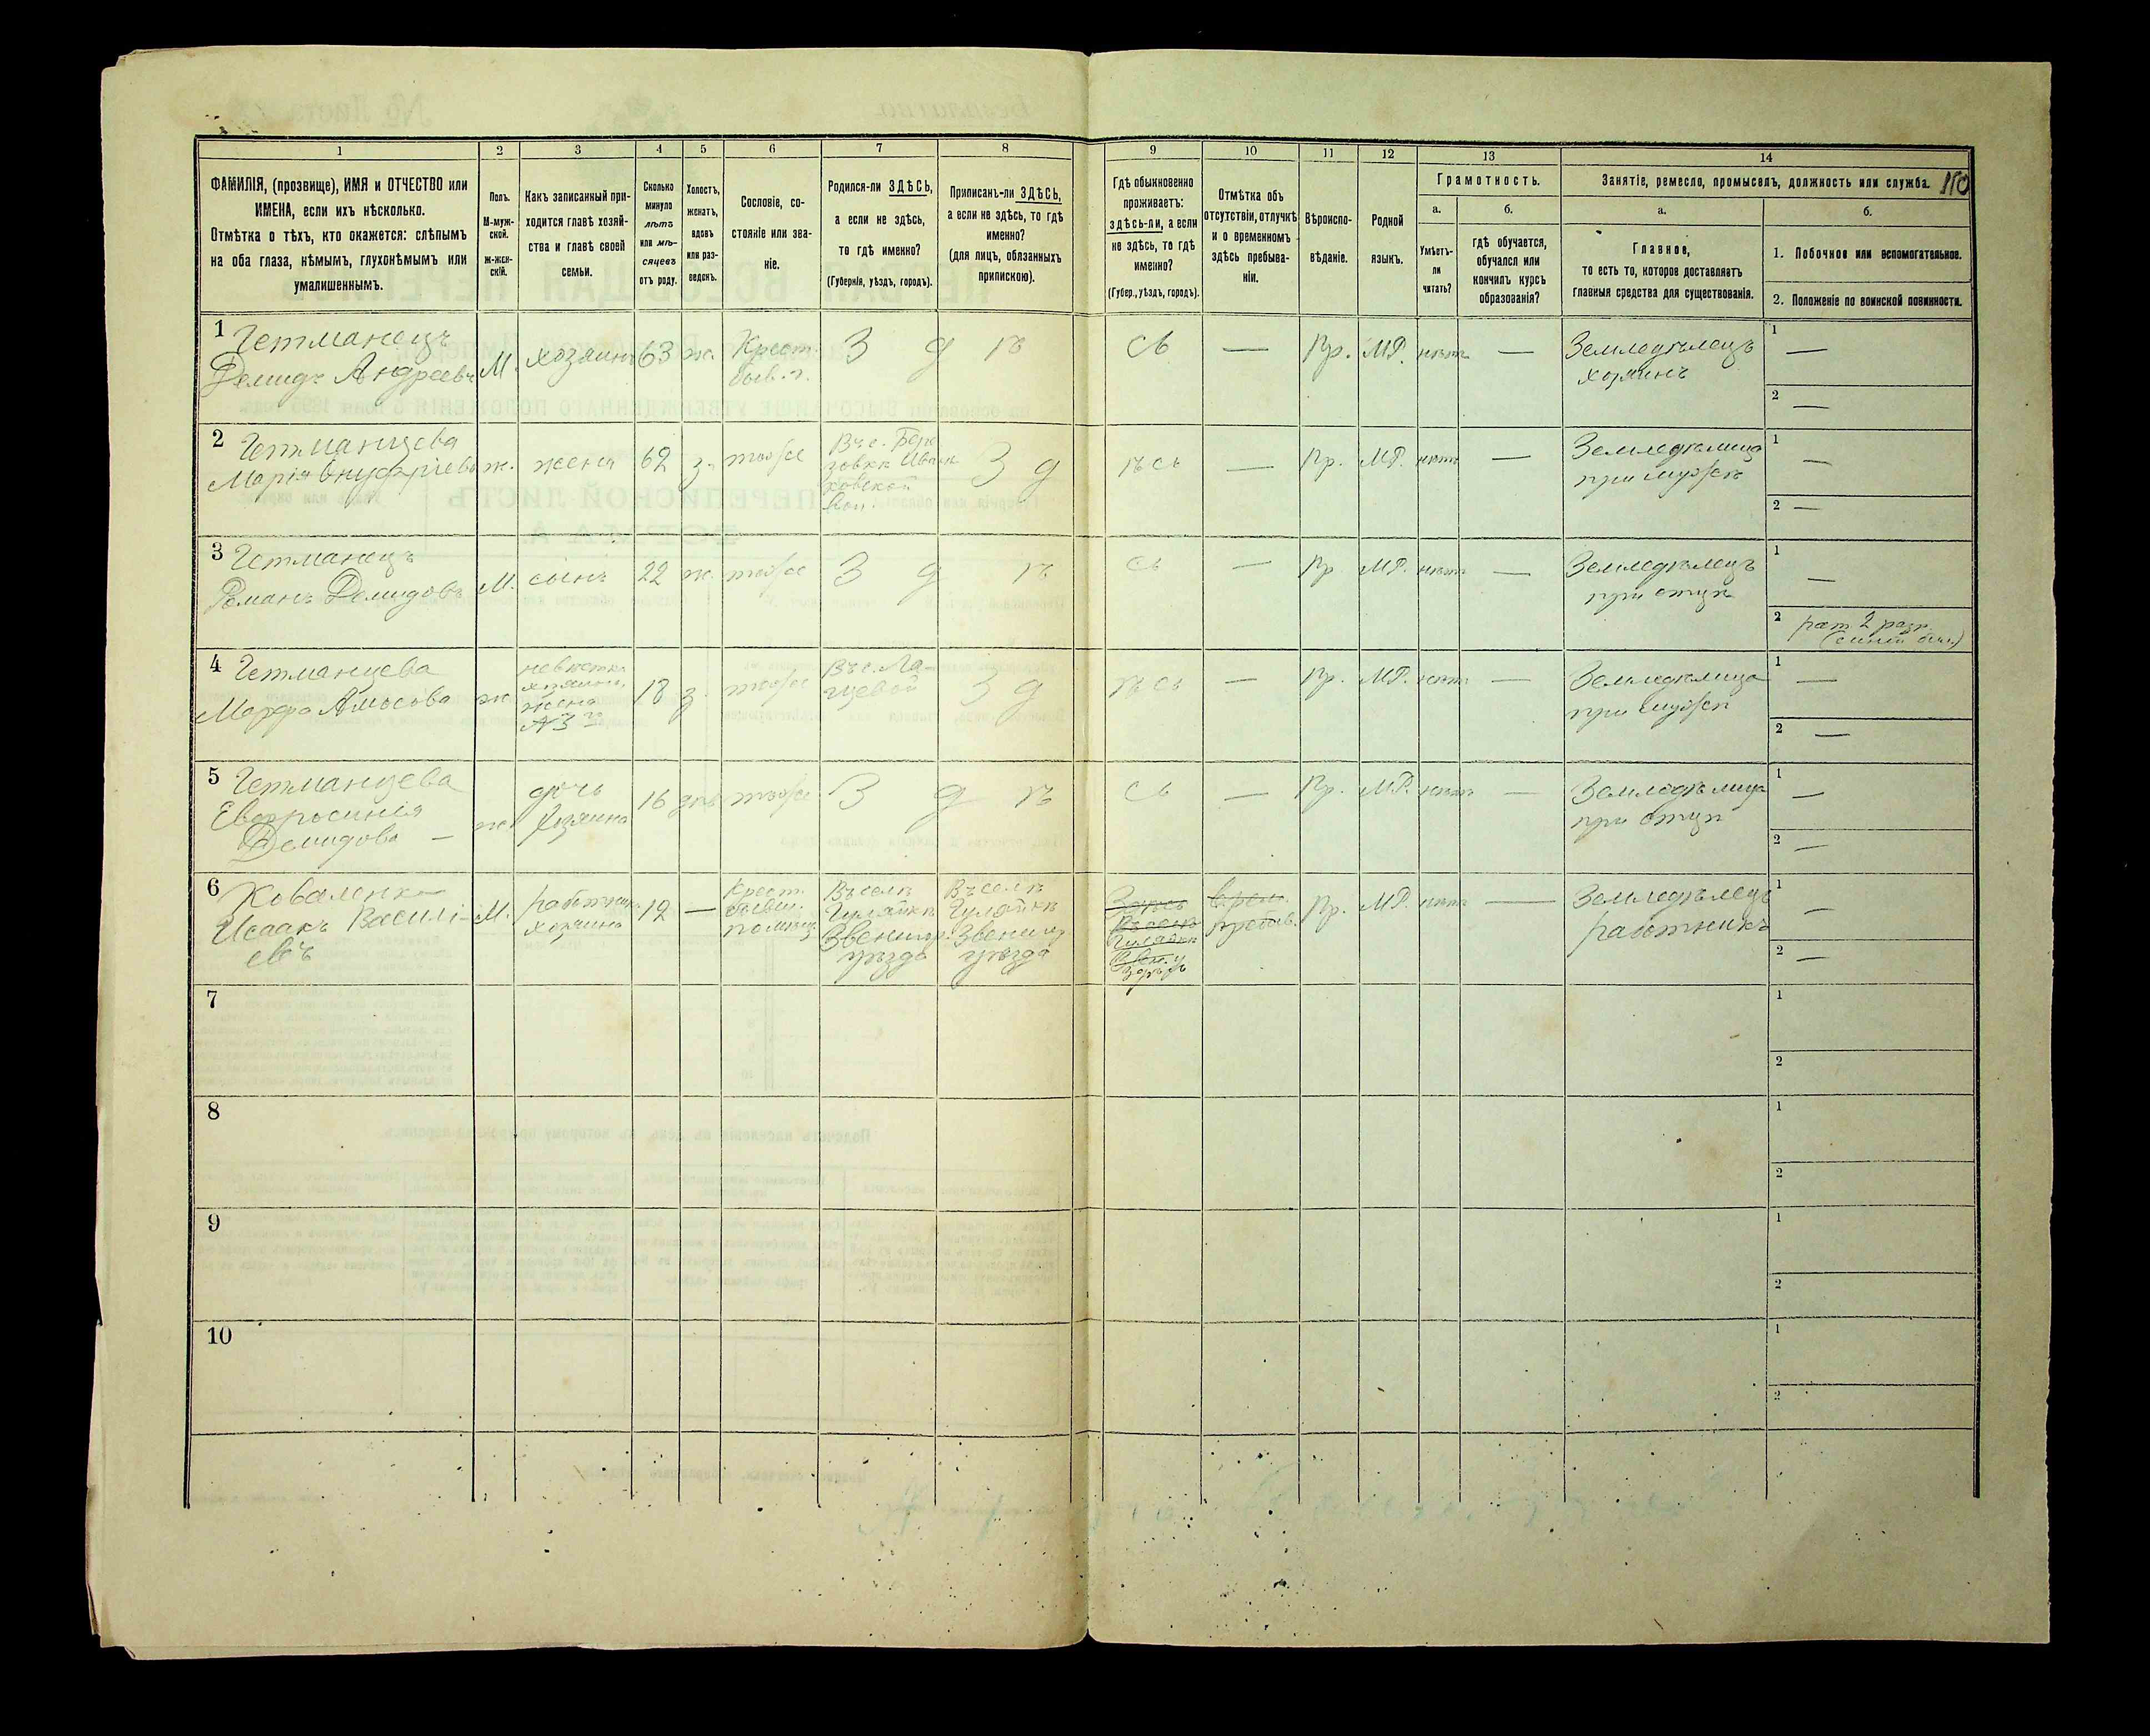 1 2 3 4 5 6 7 8 9 10 11 12 13 14
ФАМИЛІЯ, (прозвище), ИМЯ и ОТЧЕСТВО или
ИМЕНА, если ихъ нѣсколько.
Отмѣтка о тѣхъ, кто окажется: слѣпымъ
на оба глаза, нѣмымъ, глухонѣмымъ или
умалишеннымъ.
Полъ.
М-муж-
ской.
ж-жен-
скій.
Какъ записанный при-
ходится главѣ хозяй-
ства и главѣ своей
семьи.
Сколько
минуло
лѣтъ
или мѣ-
сяцевъ
отъ роду.
Холостъ,
женатъ,
вдовъ
или раз-
веденъ.
Сословіе, со-
стояніе или зва-
ніе.
Родился-ли ЗДѢСЬ,
а если не здѣсь,
то гдѣ именно?
(Губернія, уѣздъ, городъ).
Приписанъ-ли ЗДѢСЬ,
а если не здѣсь, то гдѣ
именно?
(для лицъ, обязанныхъ
припискою).
Гдѣ обыкновенно
проживаетъ:
здѣсь-ли, а если
не здѣсь, то гдѣ
именно?
(Губер., уѣздъ, городъ).
Отмѣтка объ
отсутствіи, отлучкѣ
и о временномъ
здѣсь пребыва-
ніи.
Вѣроиспо-
вѣданіе.
Родной
языкъ.
Грамотность.
а.
Умѣетъ-
ли
читать?
б.
гдѣ обучается,
обучался или
кончилъ курсъ
образованія?
Занятіе, ремесло, промыселъ, должность или служба. 110
а.
Главное,
то есть то, которое доставляетъ
главныя средства для существованія.
б.
1. Побочное или вспомогательное.
2. Положеніе по воинской повинности.
1 Гетманецъ
Демидъ Андреевъ
М.
хозяинъ
63
ж.
Крест.
3 д ѣ сь
—
Пр.
МР.
нѣтъ
—
Земледѣлецъ
хозяинъ
1 —
2 —
2 Гетманцева
Марія Онуфріева
ж.
жена
62
з.
тоже
Въ с. Бере
зовкѣ Ивань
ковской
вол.
3 д ѣ сь
—
Пр.
МР.
нѣтъ
—
Земледѣлица
при мужѣ
1 —
2 —
3 Гетманецъ
Романъ Демидовъ
М.
сынъ
22
ж.
тоже
3 д ѣ сь
—
Пр
МР.
нѣтъ
—
Земледѣлецъ
при отцѣ
1 —
2 рат. 2 разр.
4 Гетманцева
Марфа Амосова
ж
невѣстка
хозяина,
жена
№3го
18
з.
тоже
Въ с. Ла-
щевой
3 д ѣ сь
—
Пр.
МР.
нѣтъ
—
Земледѣлица
при мужѣ
1 —
2 —
5 Гетманцева
Евфросинія
Демидова —
ж.
дочь
хозяина
16
тоже
3 д ѣ сь
—
Пр.
МР.
нѣтъ
—
Земледѣлица
при отцѣ
1 —
2 —
6 Коваленко
Исаакъ Василі-
евъ
М.
работник.
хозяина
12
—
Крест.
бывш.
помѣщ.
Въ селѣ
Гулайкѣ
Звенигор.
уѣзда
Въ селѣ
Гулайкѣ
Звенигор
уѣзда
Здѣсь
Въ селѣ
Гулайкѣ
Звен. у
Здѣсь
врем.
пребыв.
Пр.
МР.
нѣтъ
—
Земледѣлецъ
работникъ
1 —
2 —
7 1
2
8 1
2
9 1
2
10 1
2